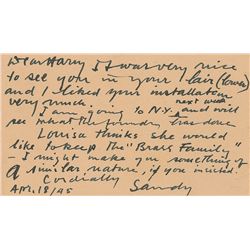 Dear Harry It was very nice
to see you in your lair (tower)
and I liked your installation
very much.
next week
I am going to N.Y. and will
see what the foundry has done
Louisa thinks she would
like to keep the "Brass Family"
– I might make you something of
a similar nature, if you insisted.
Cordially
APR. 18/45 Sandy